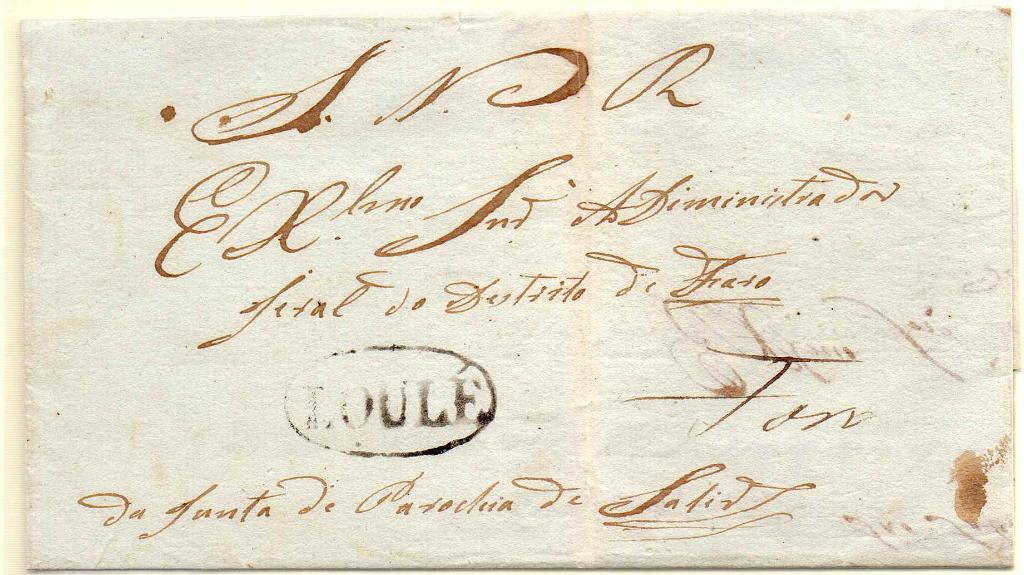 S. N. R
Ex.lmo Snr Administrador
Geral do Destrito de Faro
LOULÉ
da Junta de Parochia de Salir